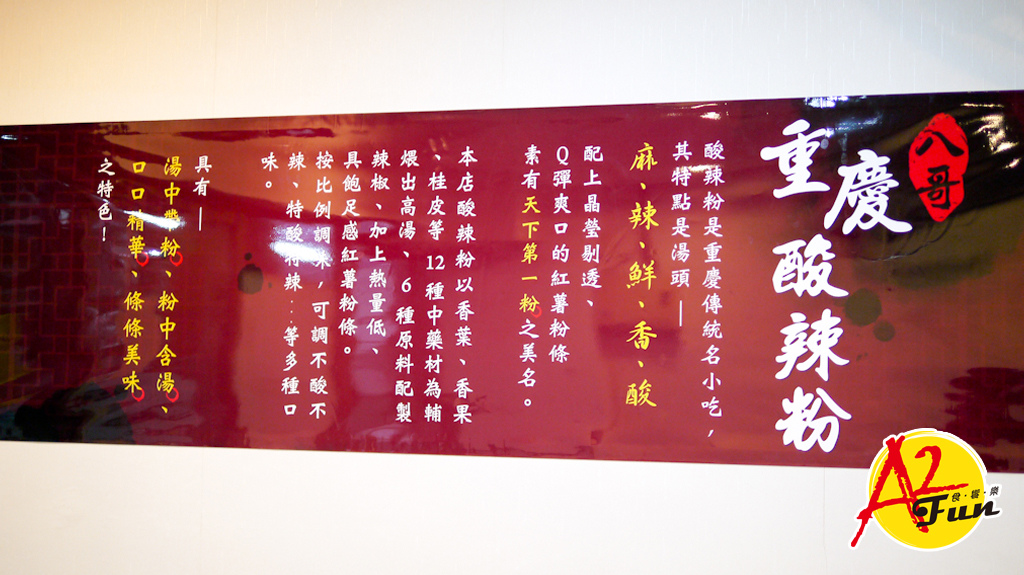 八哥
重慶酸辣粉
酸辣粉是重慶傳統名小吃，
其特點是湯頭—
麻、辣、鮮、香、酸
配上晶瑩剔透、
Q彈爽口的紅薯粉條
素有天下第一粉之美名。
本店酸辣粉以香葉、香果
、桂皮等12種中藥材為輔
煨出高湯、6種原料配製
辣椒、加上熱量低、
具飽足感紅薯粉條。
按比例調味，可調不酸不
辣、特酸特辣‥等多種口
味。
具有—
湯中帶粉、粉中含湯、
口口精華、條條美味
之特色！
A2
食·饗·樂
Fun